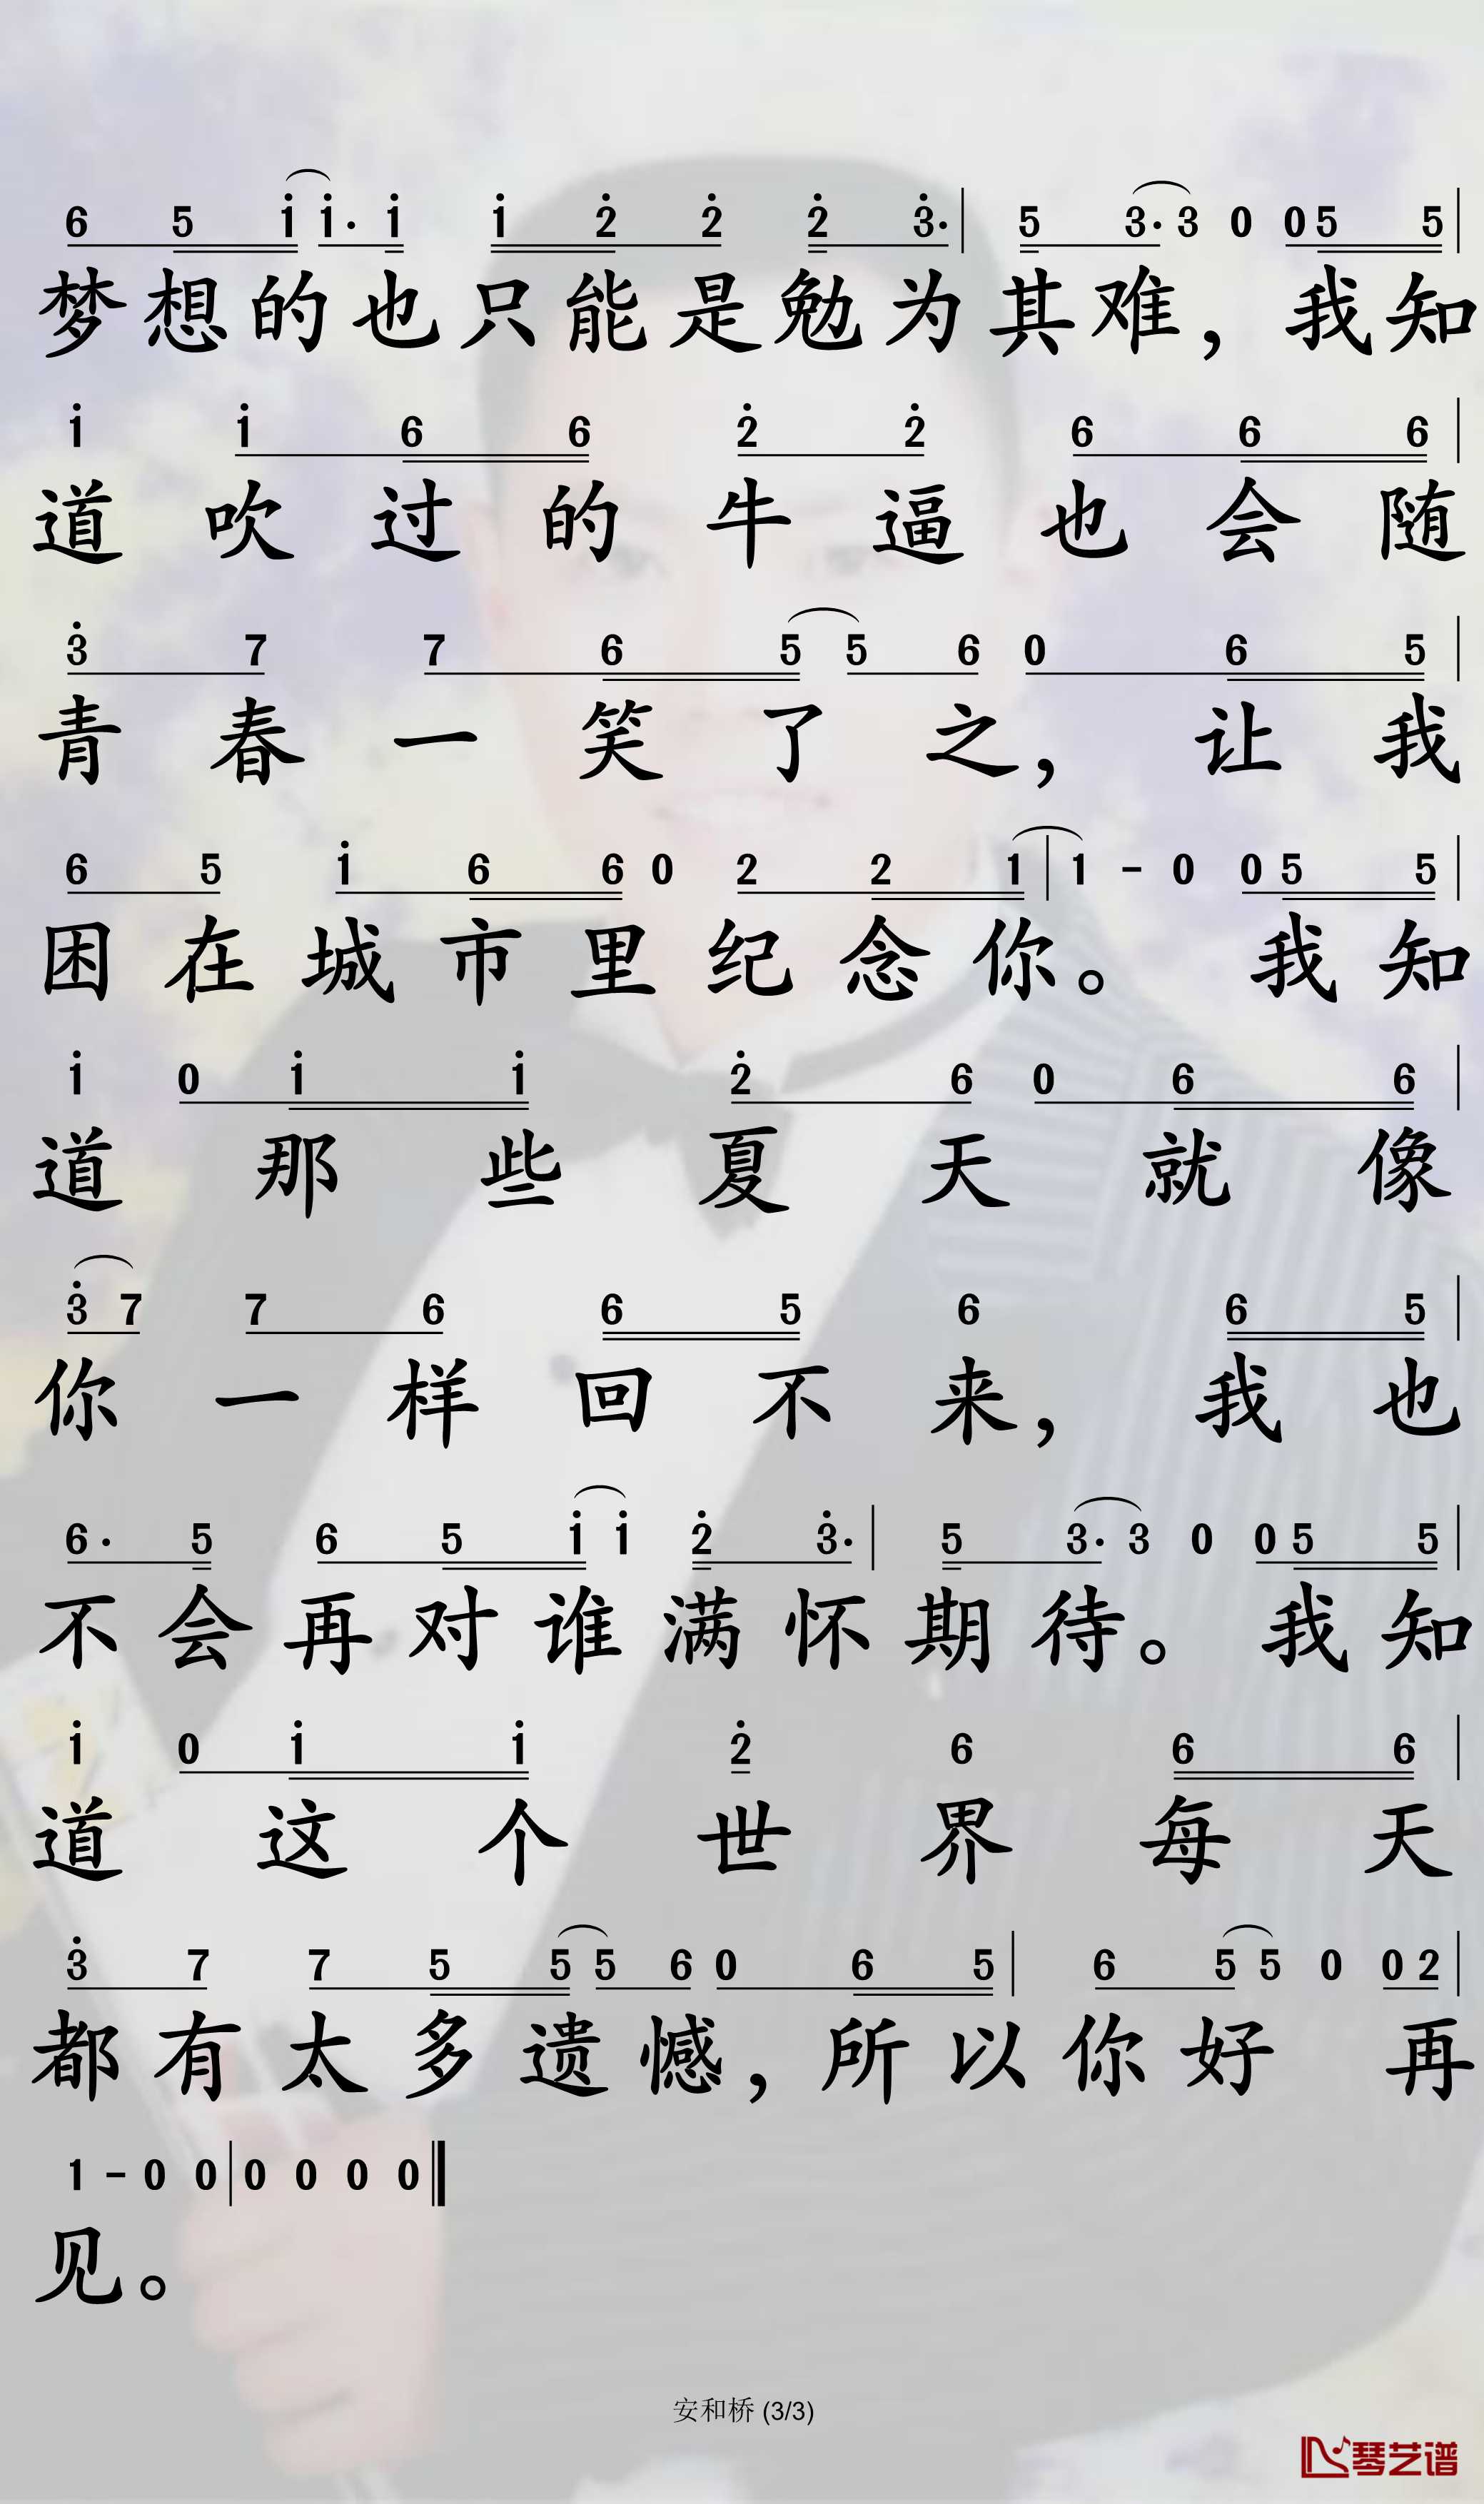 6 5 i i· i i 2̇ 2̇ 2̇ 3̇· | 5 3· 3 0 0 5 5 |
梦想的也只能是勉为其难，我知
i i 6 6 2̇ 2̇ 6 6 6 |
道吹过的牛逼也会随
3̇ 7 7 6 5 5 6 0 6 5 |
青春一笑了之，让我
6 5 i 6 6 0 2 2 1 | 1 - 0 0 5 5 |
困在城市里纪念你。我知
i 0 i i 2̇ 6 0 6 6 |
道那些夏天就像
3̇ 7 7 6 6 5 6 6 5 |
你一样回不来，我也
6· 5 6 5 i i 2̇ 3̇· | 5 3· 3 0 0 5 5 |
不会再对谁满怀期待。我知
i 0 i i 2̇ 6 6 6 |
道这个世界每天
3̇ 7 7 5 5 5 6 0 6 5 | 6 5 5 0 0 2 |
都有太多遗憾，所以你好再
1 - 0 0 | 0 0 0 0 ‖
见。
安和桥 (3/3)
琴艺谱